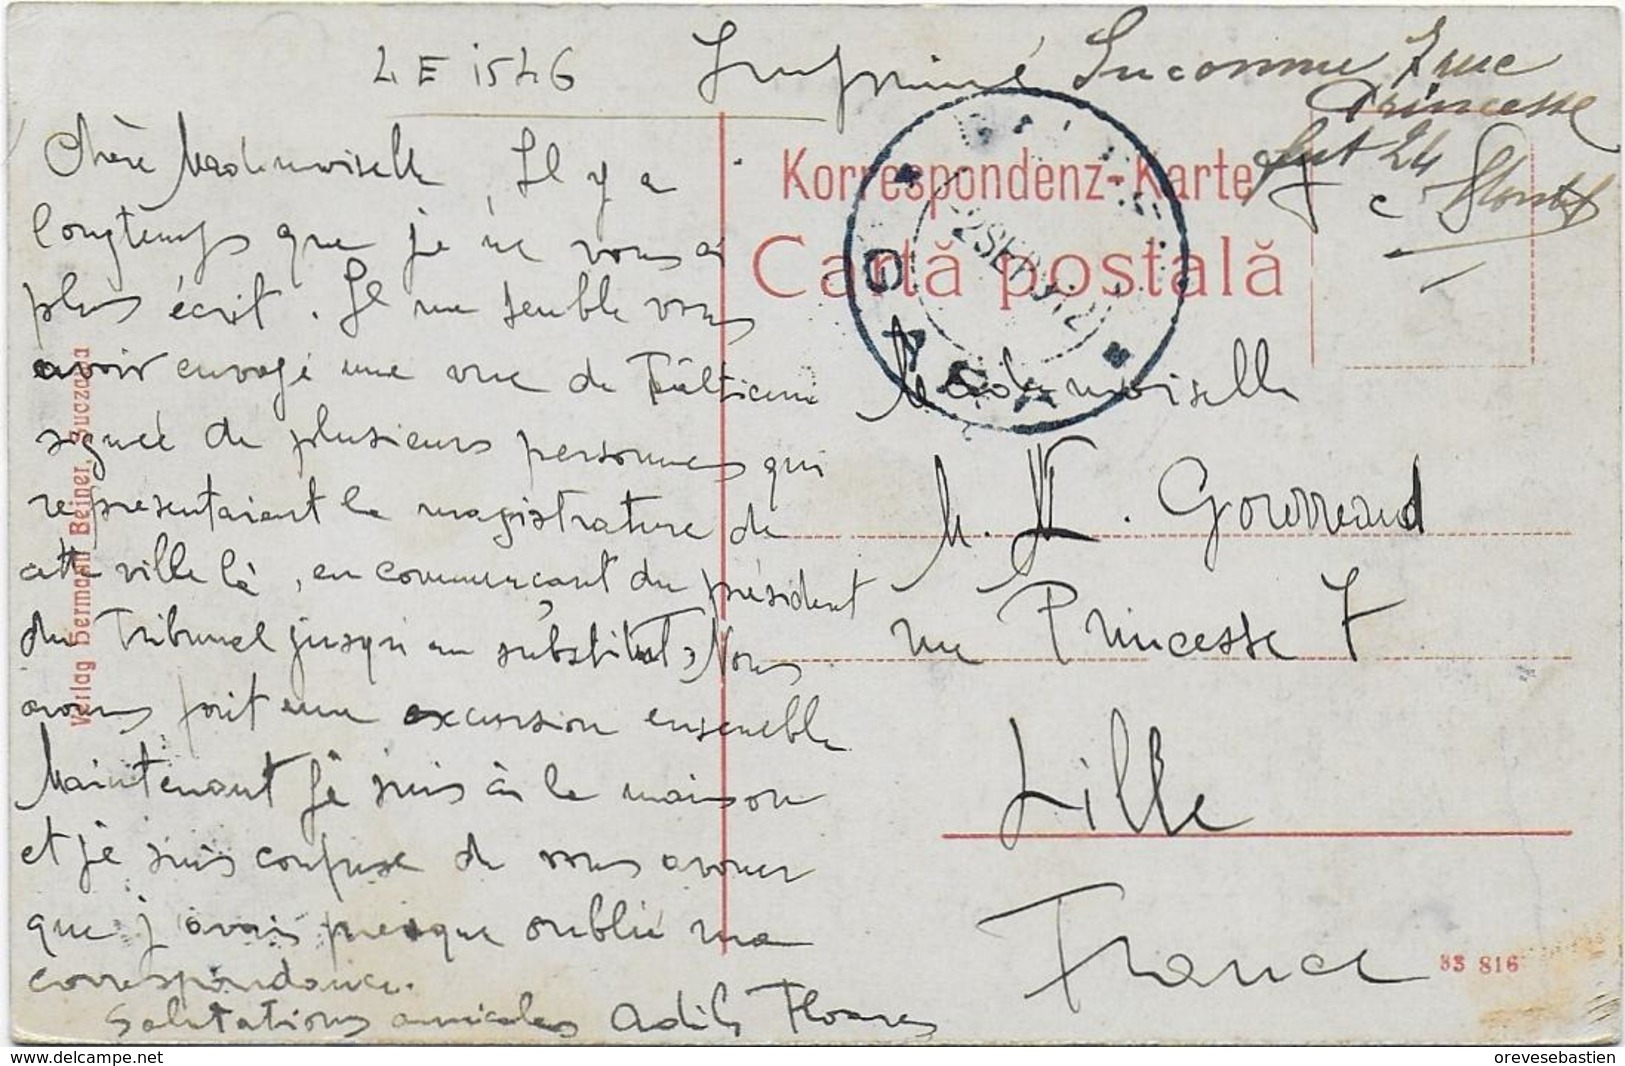 4E 1546
Imprimé Inconnue rue
Princesse
fact 24
Chère Mademoiselle Il y a
longtemps que je ne vous ai
plus écrit. Il me semble vous
avoir envoyé une vue de Fălticeni
signée de plusieurs personnes qui
représentaient la magistrature de
cette ville là, en commençant du président
du Tribunal jusqu'au substitut. Nous
avons fait une excursion ensemble
Maintenant je suis à la maison
et je suis confuse de vous avouer
que j'avais presque oublié ma
correspondance.
Salutations amicales
Korrespondenz-Karte
Cartă postală
Mademoiselle
M. Gourreaud
rue Princesse 7
Lille
France
33 816
Verlag Hermann Beiner, Suczawa
www.delcampe.net
orevesebastien